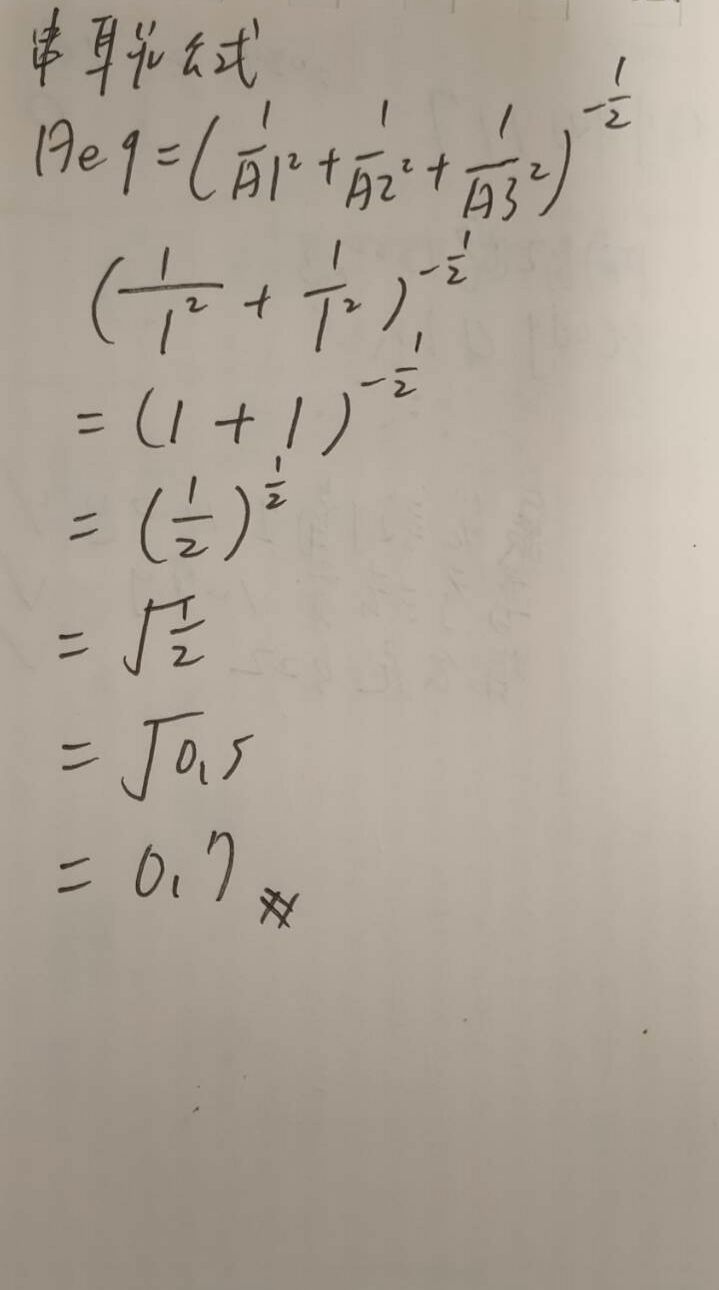 串聯公式
Aeq=(1/A1²+1/A2²+1/A3²)^-1/2
(1/1²+1/1²)^-1/2
=(1+1)^-1/2
=(1/2)^1/2
=√1/2
=√0.5
=0.7